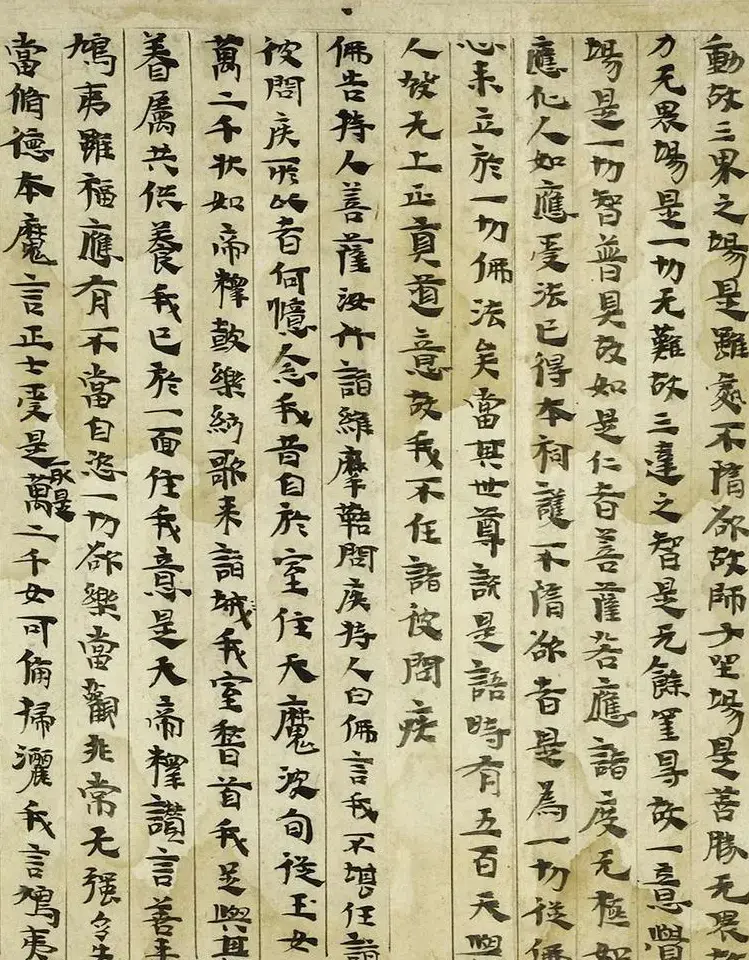 動故三界之場是雖處不隋欲故師子坐場是善勝无畏故
力无畏場是一切无難故三達之智是无餘罣㝵故一意覺
場是一切智普具故如是仁者菩薩若應諸度无極如
應化人如應受法已得本祠護不隋欲者是為一切從佛
心来立於一切佛法矣當其世尊說是語時有五百天與
人發无上正真道意故我不任詣彼問疾
佛告持人菩薩汝行詣維摩鞊問疾持人白佛言我不堪任詣
彼問疾所以者何憶念我昔自於室住天魔波旬從玉女
萬二千狀如帝釋鼓樂絃歌来詣城我室稽首我足與其
眷屬共供養我已於一面住我意是天帝釋讚言善来
鳩夷雖福應有不當自恣一切欲樂當觀非常无强
當脩德本魔言正士受是萬二千女可俻掃灑我言鳩夷